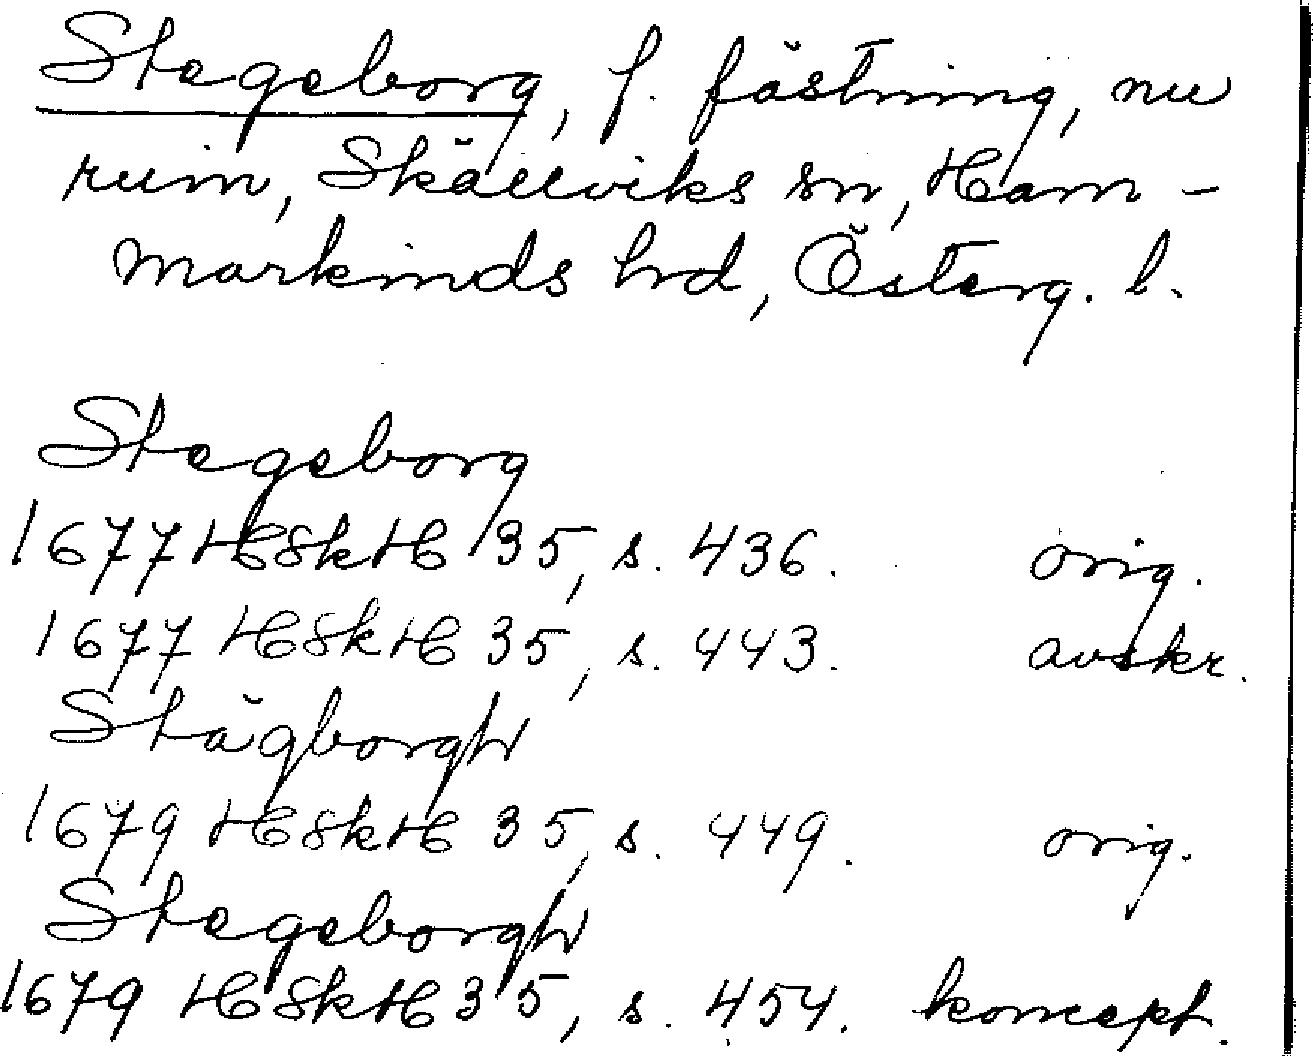 Stegeborg, f. fästning, nu
ruin, Skällviks sn, Ham-
markinds hrd, Österg. l.
Stegeborg
1677 HSkH 35, s. 436. orig.
1677 HSkH 35, s. 443. avskr.
Stägborgh
1679 HSkH 35, s. 449. orig.
Stegeborgh
1679 HSkH 35, s. 454. koncept.